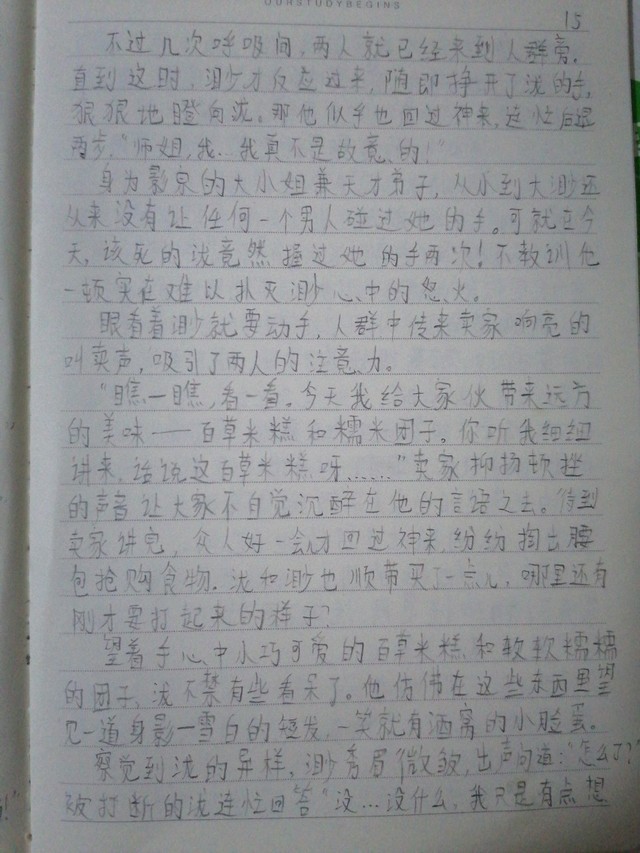 OURSTUDYBEGINS
15
不过几次呼吸间,两人就已经来到人群旁。
直到这时,渺才反应过来,随即挣开了泷的手,
狠狠地瞪向泷。那他似乎也回过神来,连忙后退
两步,“师姐,我...我真不是故意的!”
身为影宗的大小姐兼天才弟子,从小到大渺还
从来没有让任何一个男人碰过她的手。可就在今
天,该死的泷竟然握过她的手两次!不教训他
一顿实在难以扑灭渺心中的怒火。
眼看着渺就要动手,人群中传来卖家响亮的
叫卖声,吸引了两人的注意力。
“瞧一瞧,看一看。今天我给大家伙带来远方
的美味——百草米糕和糯米团子。你听我细细
讲来,话说这百草米糕呀......”卖家抑扬顿挫
的声音让大家不自觉沉醉在他的言语之去。待到
卖家讲完,众人好一会才回过神来,纷纷掏出腰
包抢购食物。泷和渺也顺带买了一点儿,哪里还有
刚才要打起来的样子?
望着手心中小巧可爱的百草米糕和软软糯糯
的团子,泷不禁有些看呆了。他仿佛在这些东西里望
见一道身影—雪白的短发,一笑就有酒窝的小脸蛋。
察觉到泷的异样,渺秀眉微皱,出声问道:“怎么了?”
被打断的泷连忙回答“没...没什么,我只是有点想